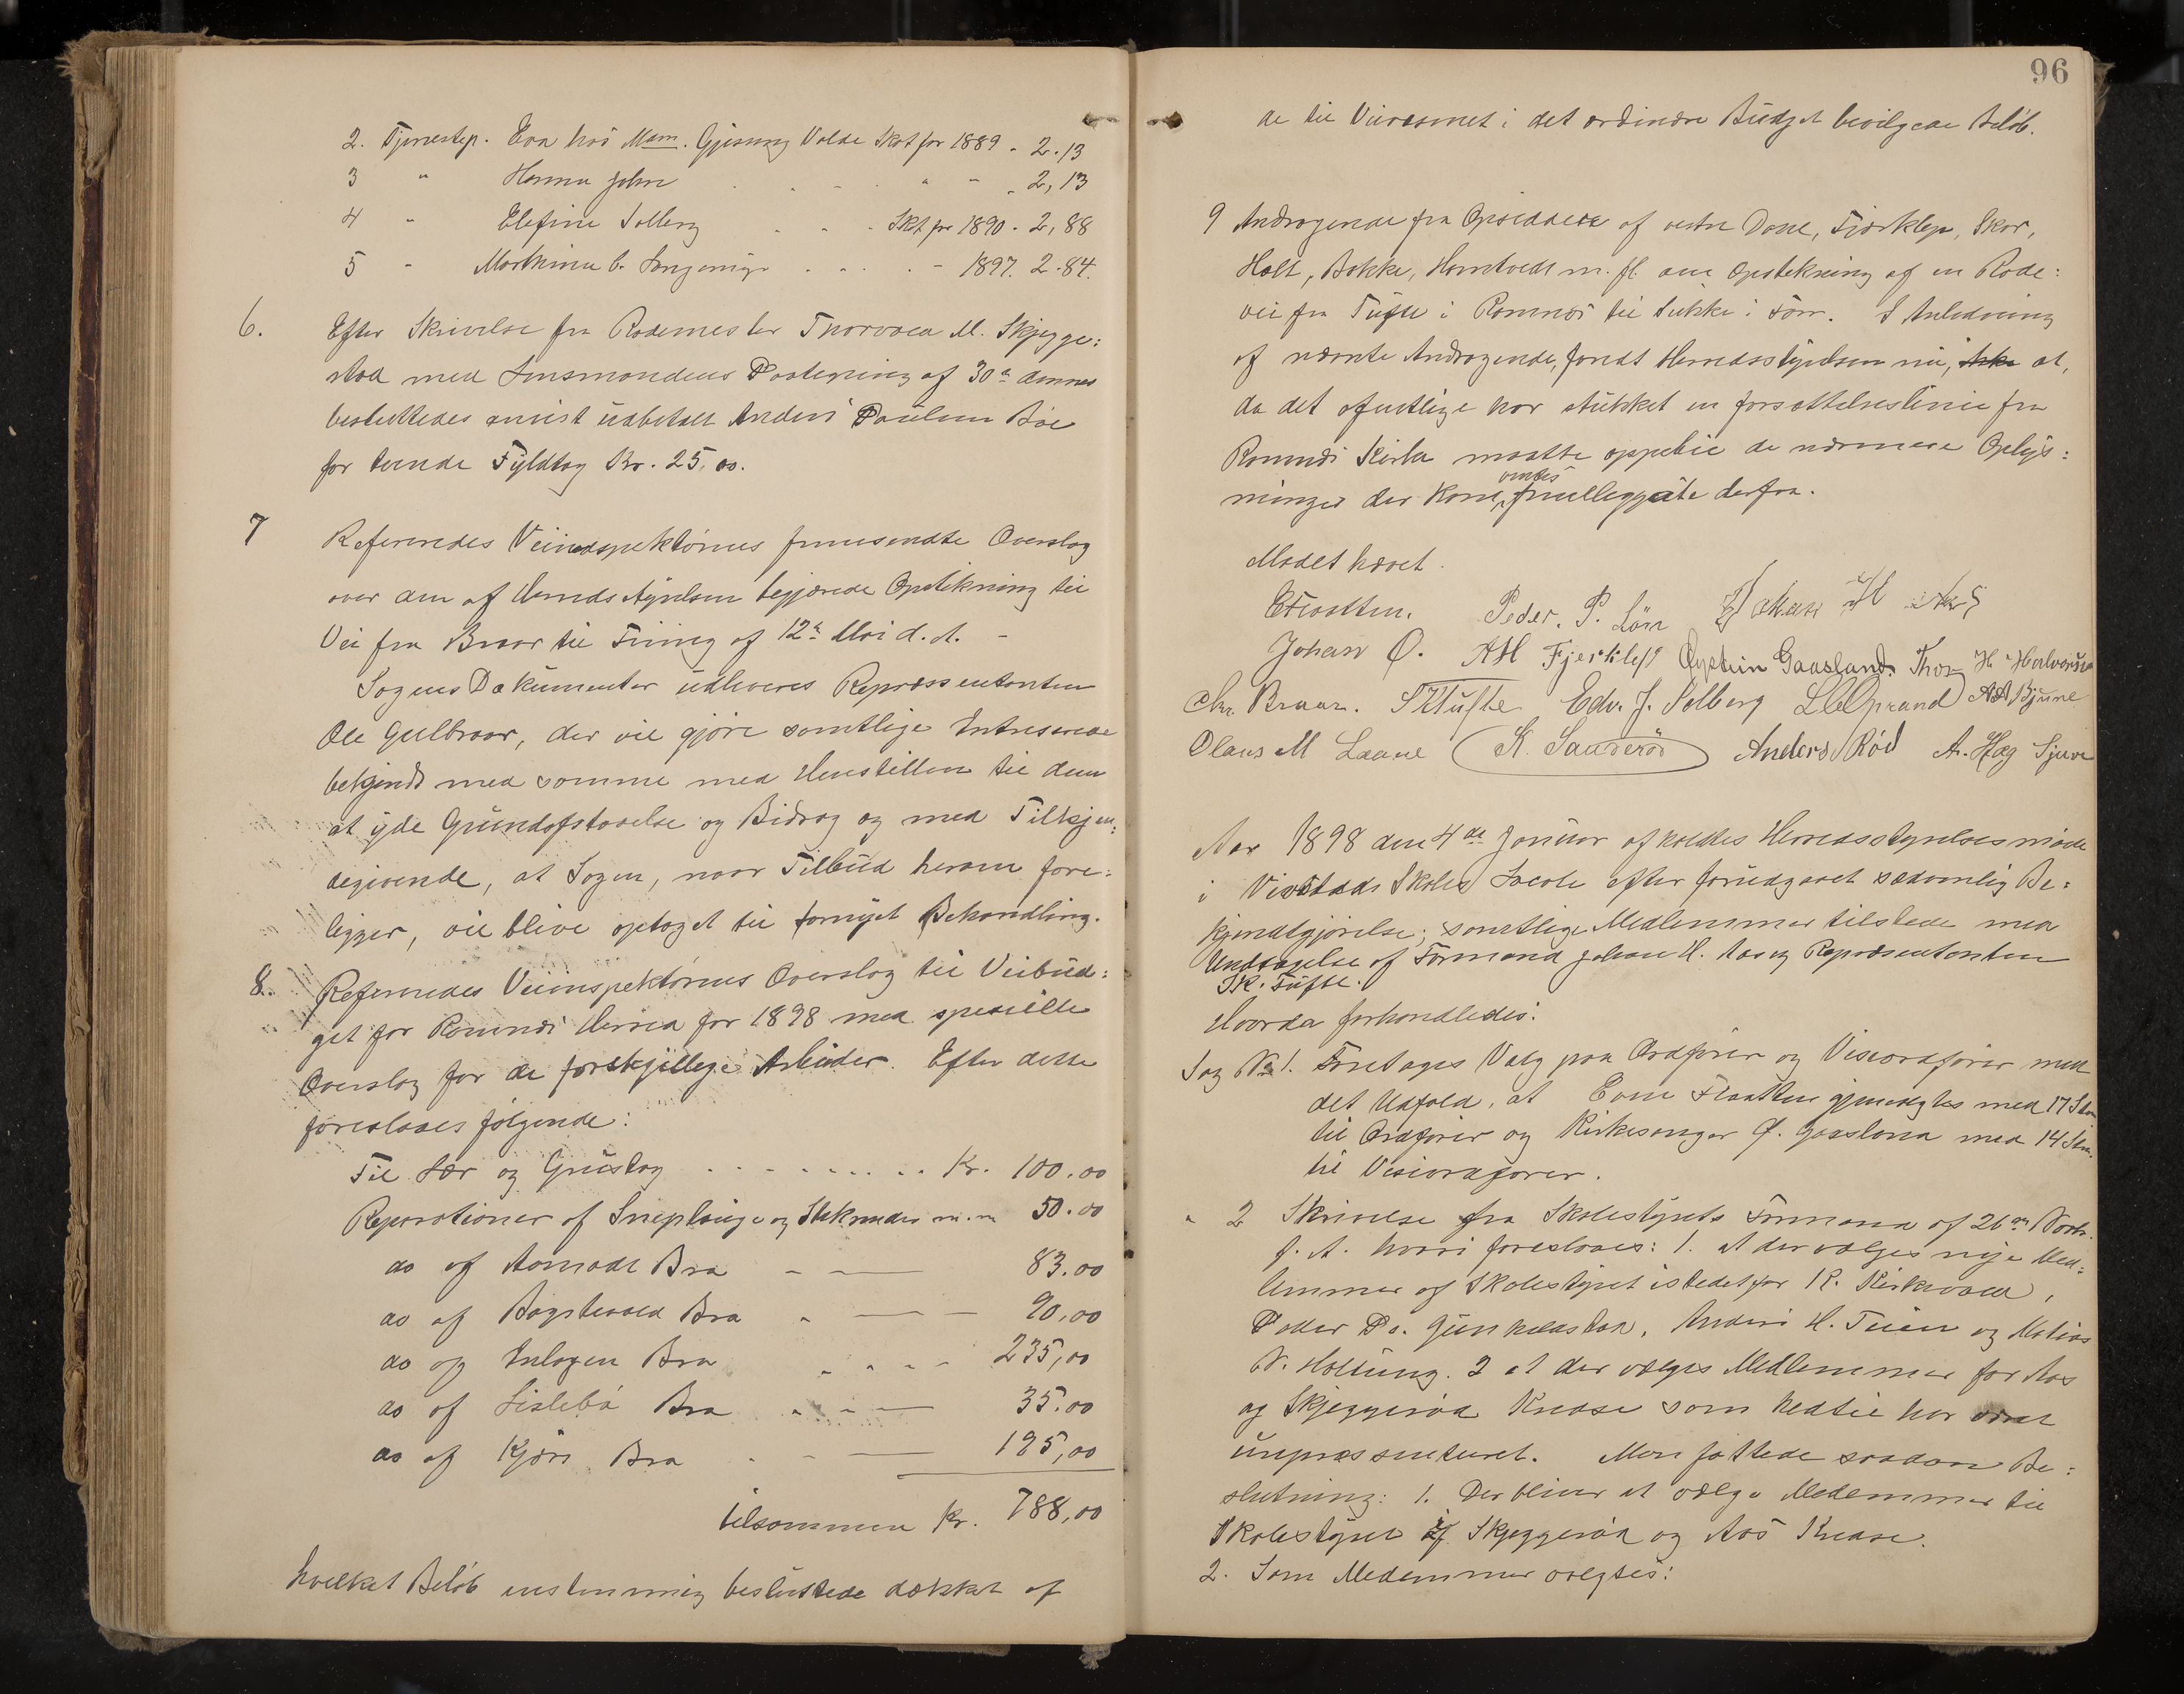 2. Tjenestep. Eva hos Mam. Gjisung Valde Skat for 1889 - 2.13
3 " Hanna John " - - 2,13
4 " Elefine Solberg - - - Skt for 1890 - 2,88
5 - Marthinie C. - - - - 1897. 2.84.
6. Efter Skrivelse fra Rodemester Thorvald M. Skjegge:
stad med Lensmandens Paategning af 30te dennes
besluttedes anvist udbetalt Anders Paulsen Bøe
for tvende Fyldtag Kr. 25,00.
7 Refereredes Veiindspektørnes fremsendte Overslag
over den af Herredsstyrelsen begjærede Opstikning til
Vei fra Braar til Tining af 12te Mai d. A. -
Sagens Dokumenter udleveres Repræsentanten
Ole Gulbraar, der vil gjøre samtlige Intreserede
bekjendt med samme med Henstillen til dem
at yde Grundafstaaelse og Bidrag og med Tilkjen:
degivende, at Sagen, naar Tilbud herom fore:
ligger, vil blive optaget til fornyet Behandling.
8. Refereredes Veiinspektørens Overslag til Veibud:
get for Romnæs Herred for 1898 med spesielle
Overslag for de forskjellige Arbeider. Efter dette
foreslaaes følgende:
Til Ler og Grustag - - - - - - - - Kr. 100.00
Reparationer af Sneplouge og Stikrender m.m 50.00
do af Aamodt Bro - — 83.00
do af Bogstevold Bro - — - 90,00
do af Enlagen Bro - - - - 235,00
do af Lislebø Bro - - — 35.00
do af Kjøs Bro - - — 195,00
tilsammen Kr. 788,00
hvilket Beløb enstemmig besluttede dækket af
96
de til Veivæsnet i det ordinære Budget bevilgede Beløb.
9 Andragende fra Opsiddere af vestre Dale, Fjærklep, Skar,
Holt, Bakke, Homtvedt m. fl. om Opstikning af en Rode:
vei fra Tufte i Romnæs til Lukke i Sør. I Anledning
af nævnte Andragende, fandt Herredsstyrelsen nu, ikke at,
da det ofentlige har stukket en forsættelseslinie fra
Romnæs Kirke maatte oppebie de nærmere Oplys:
ninger der kan ventes fremlegges ude derfra.
Mødet hævet.
E Flaatten. Peder. P. Sør Johan H Aas
Johan O. AH Fjerklep Øystein Gaasland. Thor H Halvorsen
Chr. Braar. SKTufte Edv. J. Solberg A A Bjune
Olaus M Laane K. Sanderød Anders Rød A. Hog Sjuve
Aar 1898 den 4de Januar afholdtes Herredsstyrelsesmøde
i Viestads Skoles Locale efter forudgaaet sædvanlig Be:
kjendtgjørelse; samtlige Medlemmer tilstede med
Undtagelse af Formand Johan H. Aas og Repræsentanten
SK. Tufte.
Hvorda forhandledes:
Sag No 1. Foretages Valg paa Ordfører og Viseordfører med
det Udfald, at Even Flaatten gjenvalgtes med 17 Stm
til Ordfører og Kirkesanger Ø. Gaasland med 14 Stm.
til Viseordfører.
" 2 Skrivelse fra Skolestyrets Formand af 26de Novbr.
f. A. hvori foreslaaes: 1. at der vælges nye Med:
lemmer af Skolestyret istedetfor K. Kirkevold,
Peder Ps. Gunheldstad, Anders H. Tuen og Matias
N. Holtung. 2 at der vælges Medlemmer for Aas
og Skjeggerød Kredse som hidtil har været
unrepræsenteret. Man fattede saadan Be:
slutning: 1. Der bliver at vælge Medemmer til
Skolestyret af Skjeggerød og Aas Kredse.
2. Som Medemmer valgtes: